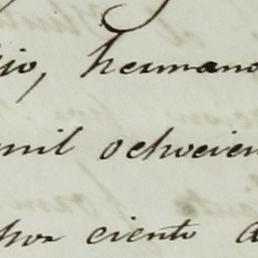 hermano
mil ochocien
por ciento a